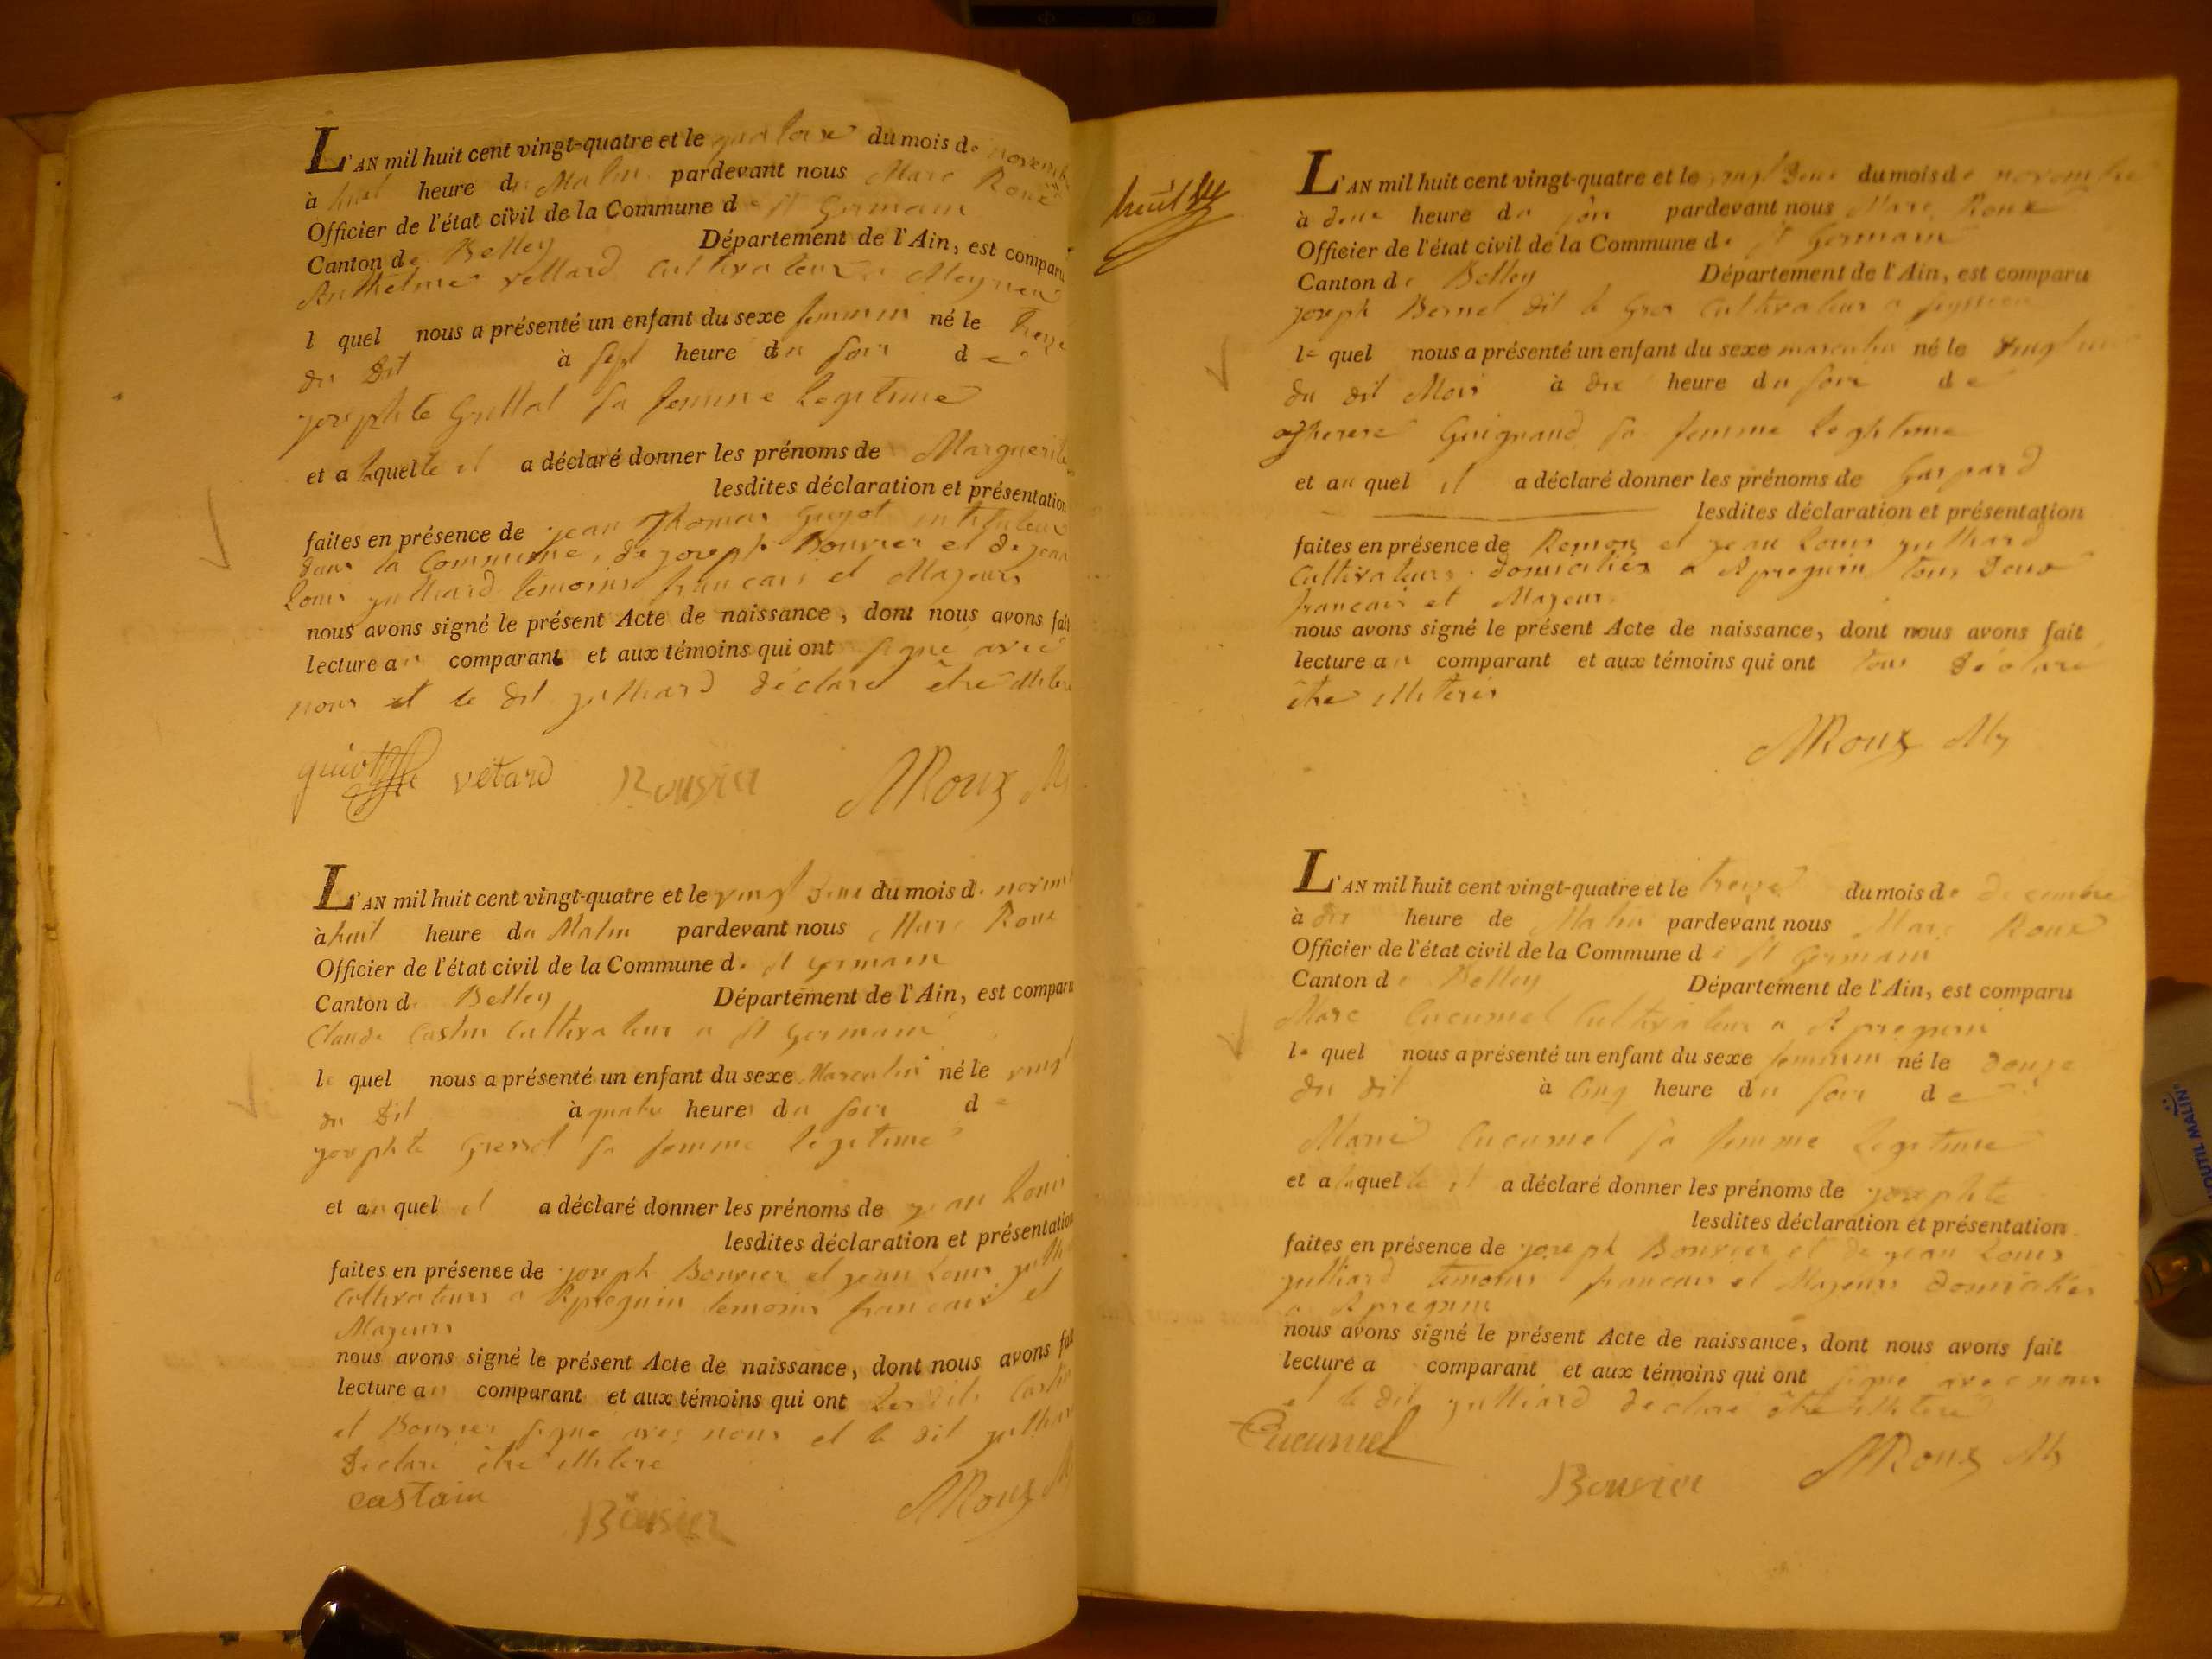 L'AN mil huit cent vingt-quatre et le quatorze du mois de novembre
à huit heure du Matin pardevant nous Marc Roux
Officier de l'état civil de la Commune de st Germain
Canton de Belley Département de l'Ain, est comparu
Anthelme vettard Cultivateur a Meyrieu
l quel nous a présenté un enfant du sexe feminin né le treize
du Dit à sept heure du soir de
josephte Grillat sa femme Legitime
et a laquelle il a déclaré donner les prénoms de Marguerite
lesdites déclaration et présentation
faites en présence de jean Thomas Guyot
dans la Commune, de joseph Bouvier et de jean
Louis julliard temoins francais et Majeurs
nous avons signé le présent Acte de naissance, dont nous avons fait
lecture au comparant et aux témoins qui ont signé avec
nous et le dit julliard déclaré être illiteré
guiot vetard Bouvier MRoux
L'AN mil huit cent vingt-quatre et le vingt deux du mois de novem
à huit heure du Matin pardevant nous Marc Roux
Officier de l'état civil de la Commune de st germain
Canton de Belley Département de l'Ain, est comparu
Claude Castin Cultivateur a st Germain
le quel nous a présenté un enfant du sexe Masculin né le vingt
du Dit à quatre heures du soir de
josephte sa femme legitime
et au quel il a déclaré donner les prénoms de jean Louis
lesdites déclaration et présentation
faites en présence de joseph Bouvier et jean Louis
Cultivateurs a Apregnin temoins francais et
Majeurs
nous avons signé le présent Acte de naissance, dont nous avons fait
lecture au comparant et aux témoins qui ont Lesdits Castin
et Bouvier signé avec nous et le dit julliard
Declaré être illiteré
castain Bouvier MRoux
huit
L'AN mil huit cent vingt-quatre et le vingt Deux du mois de novembre
à deux heure du soir pardevant nous Marc Roux
Officier de l'état civil de la Commune de st Germain
Canton de Belley Département de l'Ain, est comparu
joseph Bernel dit le Gros Cultivateur a
le quel nous a présenté un enfant du sexe masculin né le vingt un
du dit Mois à dix heure du soir de
therese Guignand sa femme legitime
et au quel il a déclaré donner les prénoms de Gaspard
lesdites déclaration et présentation
faites en présence de Remon et jean Louis julliard
Cultivateurs domiciliés a Apregnin tous Deux
francais et Majeurs
nous avons signé le présent Acte de naissance, dont nous avons fait
lecture au comparant et aux témoins qui ont tous déclaré
être illiterés
MRoux
L'AN mil huit cent vingt-quatre et le treize du mois de decembre
à dix heure de Matin pardevant nous Marc Roux
Officier de l'état civil de la Commune de st Germain
Canton de Belley Département de l'Ain, est comparu
Marc Cucumel Cultivateur a Apregnin
le quel nous a présenté un enfant du sexe feminin né le douze
du dit à cinq heure du soir de
Marie Cucumel sa femme Legitime
et a laquelle il a déclaré donner les prénoms de josephte
lesdites déclaration et présentation
faites en présence de joseph Bouvier et de jean Louis
julliard temoins francais et Majeurs domiciliés
a Apregnin
nous avons signé le présent Acte de naissance, dont nous avons fait
lecture a comparant et aux témoins qui ont signé avec nous
et le dit julliard déclaré être illiteré
Cucumel Bouvier MRoux
OUTIL MALIN